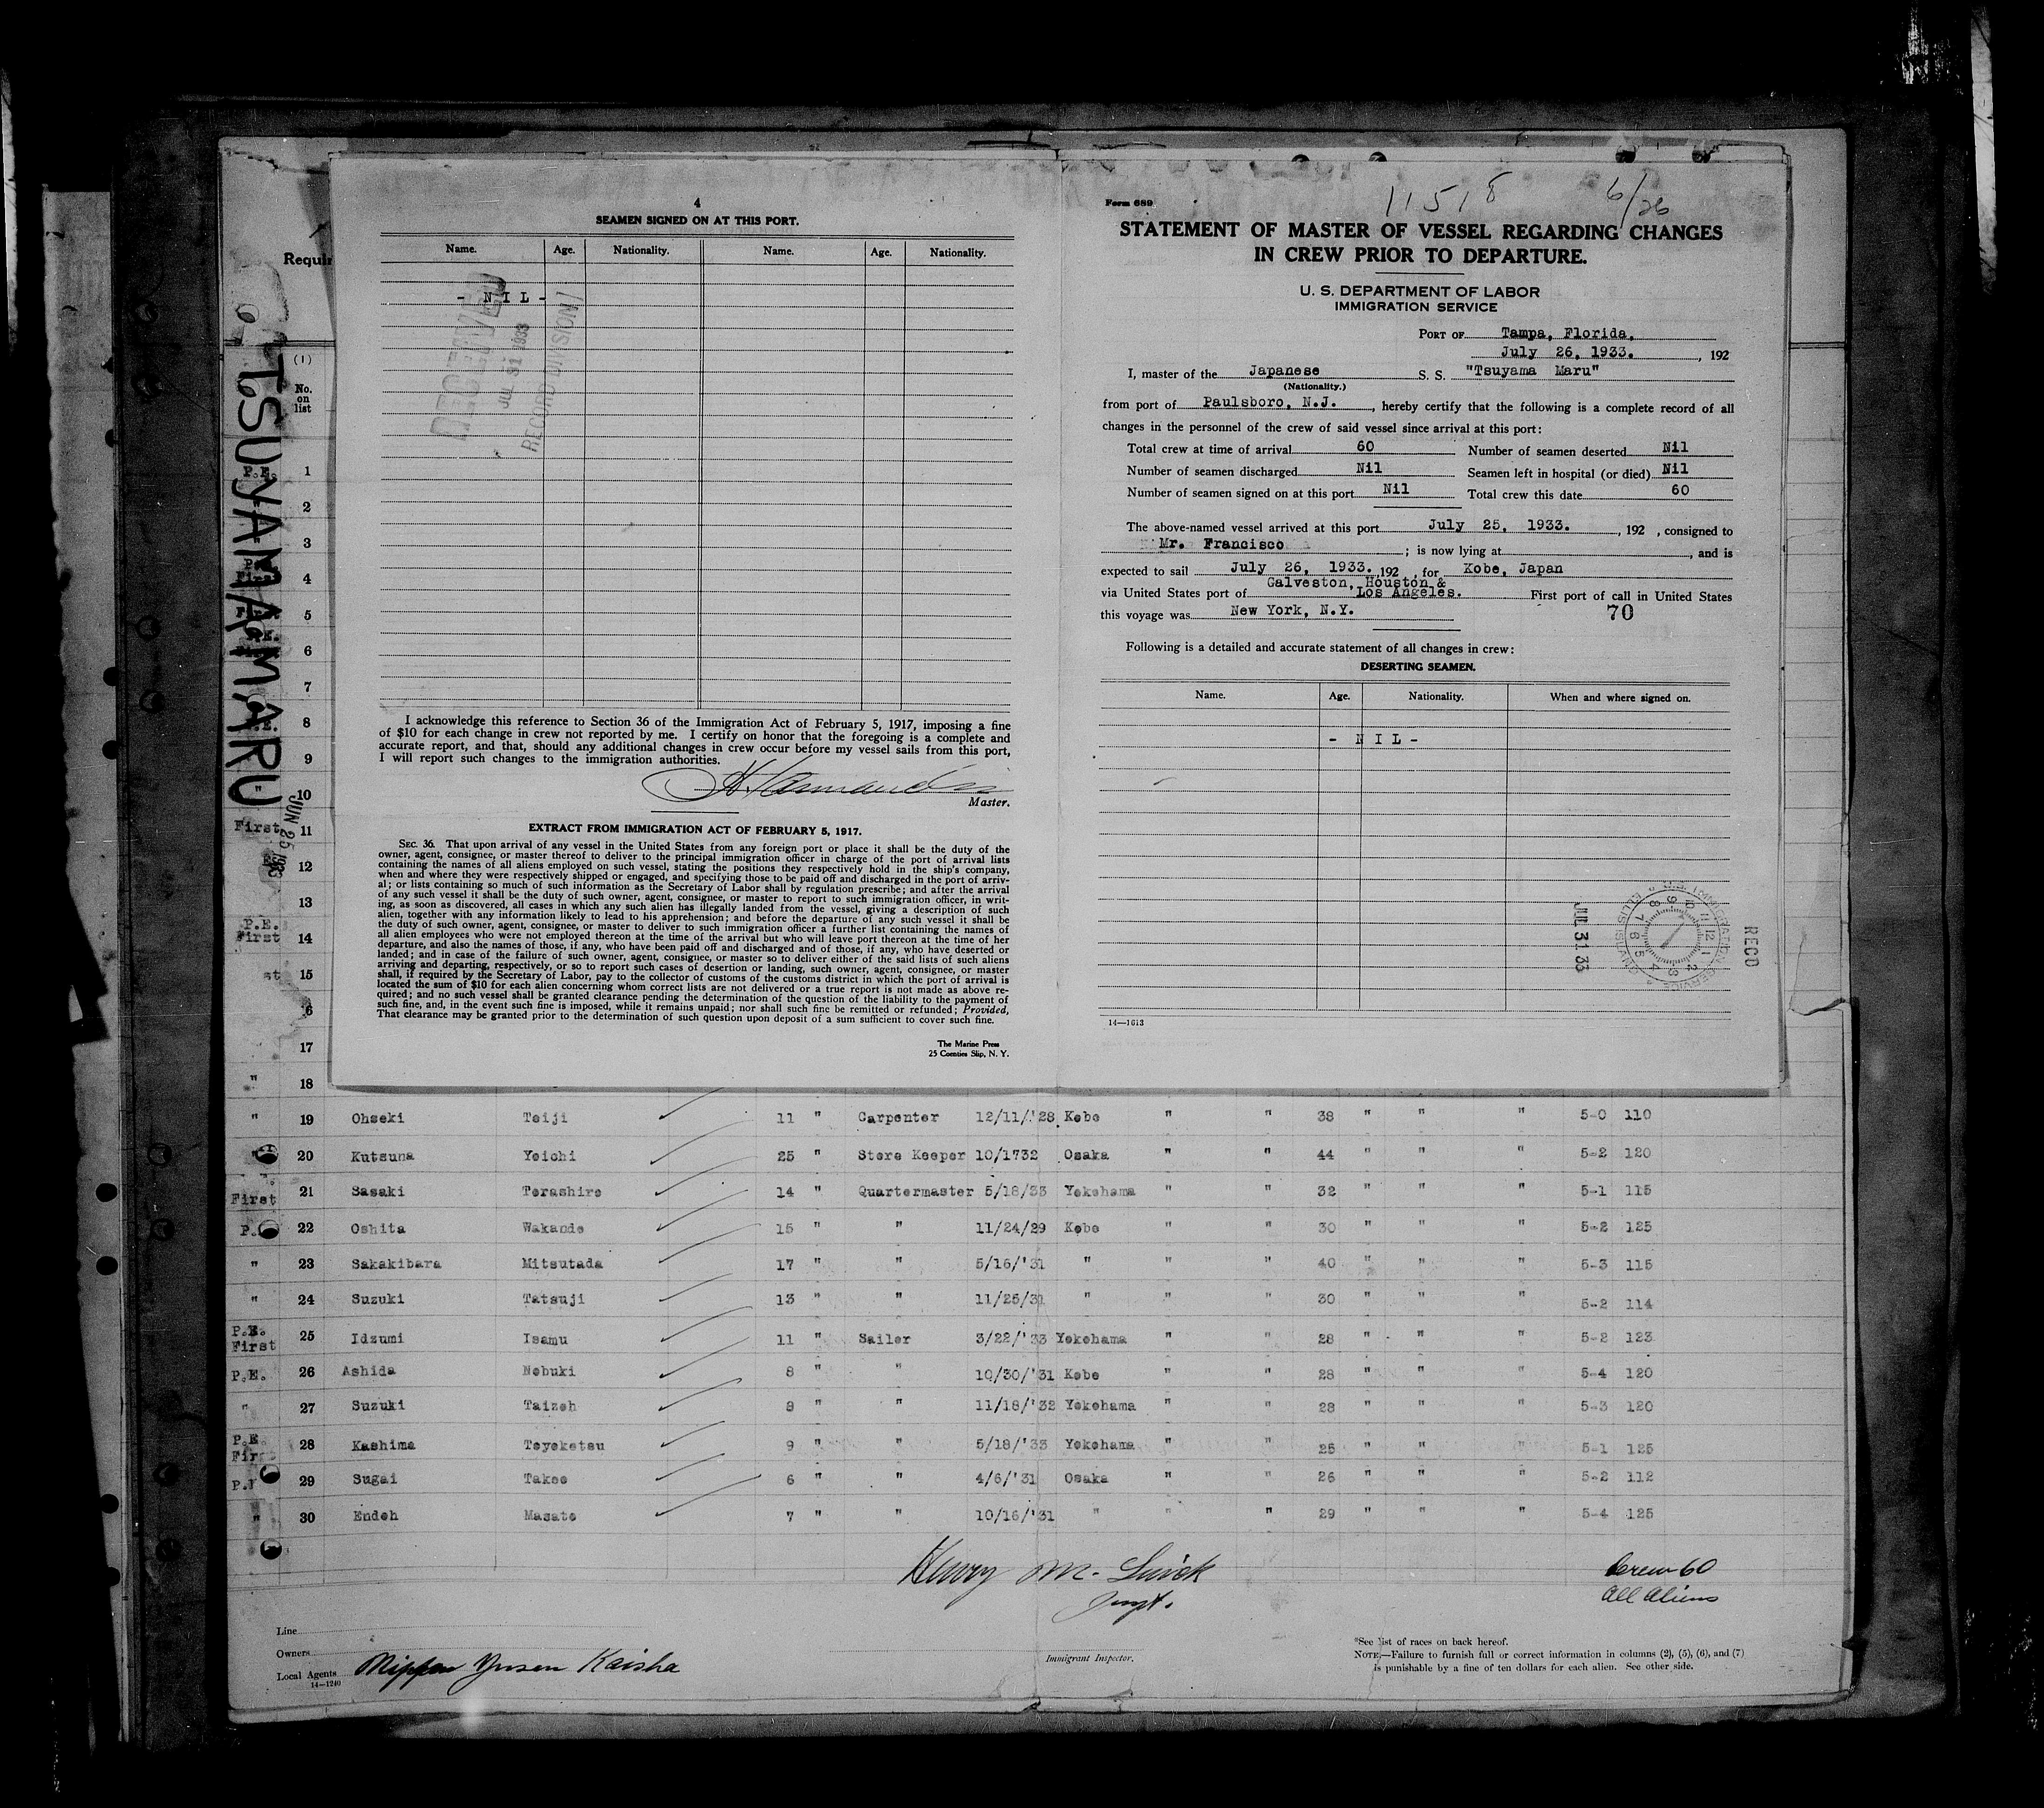 4
SEAMEN SIGNED ON AT THIS PORT.
Name. Age. Nationality. Name. Age. Nationality.
- N I L -
RECEIVED
JUL 31 1933
RECORD DIVISION
I acknowledge this reference to Section 36 of the Immigration Act of February 5, 1917, imposing a fine
of $10 for each change in crew not reported by me. I certify on honor that the foregoing is a complete and
accurate report, and that, should any additional changes in crew occur before my vessel sails from this port,
I will report such changes to the immigration authorities.
Master.
EXTRACT FROM IMMIGRATION ACT OF FEBRUARY 5, 1917.
SEC. 36. That upon arrival of any vessel in the United States from any foreign port or place it shall be the duty of the
owner, agent, consignee, or master thereof to deliver to the principal immigration officer in charge of the port of arrival lists
containing the names of all aliens employed on such vessel, stating the positions they respectively hold in the ship's company,
when and where they were respectively shipped or engaged, and specifying those to be paid off and discharged in the port of arriv-
al; or lists containing so much of such information as the Secretary of Labor shall by regulation prescribe; and after the arrival
of any such vessel it shall be the duty of such owner, agent, consignee, or master to report to such immigration officer, in writ-
ing, as soon as discovered, all cases in which any such alien has illegally landed from the vessel, giving a description of such
alien, together with any information likely to lead to his apprehension; and before the departure of any such vessel it shall be
the duty of such owner, agent, consignee, or master to deliver to such immigration officer a further list containing the names of
all alien employees who were not employed thereon at the time of the arrival but who will leave port thereon at the time of her
departure, and also the names of those, if any, who have been paid off and discharged and of those, if any, who have deserted or
landed; and in case of the failure of such owner, agent, consignee, or master so to deliver either of the said lists of such aliens
arriving and departing, respectively, or so to report such cases of desertion or landing, such owner, agent, consignee, or master
shall, if required by the Secretary of Labor, pay to the collector of customs of the customs district in which the port of arrival is
located the sum of $10 for each alien concerning whom correct lists are not delivered or a true report is not made as above re-
quired; and no such vessel shall be granted clearance pending the determination of the question of the liability to the payment of
such fine, and, in the event such fine is imposed, while it remains unpaid; nor shall such fine be remitted or refunded; Provided,
That clearance may be granted prior to the determination of such question upon deposit of a sum sufficient to cover such fine.
The Marine Press
25 Coenties Slip, N. Y.
Form 689
11518 6/26
STATEMENT OF MASTER OF VESSEL REGARDING CHANGES
IN CREW PRIOR TO DEPARTURE.
U. S. DEPARTMENT OF LABOR
IMMIGRATION SERVICE
PORT OF Tampa, Florida,
July 26, 1933. , 192
I, master of the Japanese S. S. "Tsuyama Maru"
(Nationality.)
from port of Paulsboro, N.J. , hereby certify that the following is a complete record of all
changes in the personnel of the crew of said vessel since arrival at this port:
Total crew at time of arrival 60 Number of seamen deserted Nil
Number of seamen discharged Nil Seamen left in hospital (or died) Nil
Number of seamen signed on at this port Nil Total crew this date 60
The above-named vessel arrived at this port July 25, 1933. , 192 , consigned to
Mr. Francisco ; is now lying at , and is
expected to sail July 26, 1933. ,192 , for Kobe, Japan
via United States port of Galveston, Houston & Los Angeles. First port of call in United States
this voyage was New York, N.Y. 70
Following is a detailed and accurate statement of all changes in crew:
DESERTING SEAMEN.
Name. Age. Nationality. When and where signed on.
- N I L -
RECD
JUL 31 33
14—1613
Requir
(1)
No.
on
list
TSUYAMA MARU
JUN 25 1933
P.E. 1
2
3
4
5
6
7
8
9
" 10
First 11
12
13
P.E.
First 14
st 15
6
17
" 18
" 19 Ohseki Teiji 11 " Carpenter 12/11/'28 Kobe " " 38 " " " 5-0 110
" 20 Kutsuna Yoichi 25 " Store Keeper 10/1732 Osaka " " 44 " " " 5-2 120
First 21 Sasaki Terashiro 14 " Quartermaster 5/18/33 Yokohama " " 32 " " " 5-1 115
P. 22 Oshita Wakando 15 " " 11/24/29 Kobe " " 30 " " " 5-2 125
" 23 Sakakibara Mitsutada 17 " " 5/16/'31 " " " 40 " " " 5-3 115
" 24 Suzuki Tatsuji 13 " " 11/25/31 " " " 30 " " " 5-2 114
P.E.
First 25 Idzumi Isamu 11 " Sailor 3/22/'33 Yokohama " " 28 " " " 5-2 123
P.E. 26 Ashida Nobuki 8 " " 10/30/'31 Kobe " " 28 " " " 5-4 120
" 27 Suzuki Taizoh 8 " " 11/18/'32 Yokohama " " 28 " " " 5-3 120
P.E.
First 28 Kashima Toyoketsu 9 " " 5/18/'33 Yokohama " " 25 " " " 5-1 125
29 Sugai Takeo 6 " " 4/6/'31 Osaka " " 26 " " " 5-2 112
" 30 Endoh Masato 7 " " 10/16/'31 " " " 29 " " " 5-4 125
Crew 60
All Aliens
Line
Owners
Local Agents Nippon Yusen Kaisha
14—1240
Immigrant Inspector.
*See list of races on back hereof.
NOTE.—Failure to furnish full or correct information in columns (2), (5), (6), and (7)
is punishable by a fine of ten dollars for each alien. See other side.